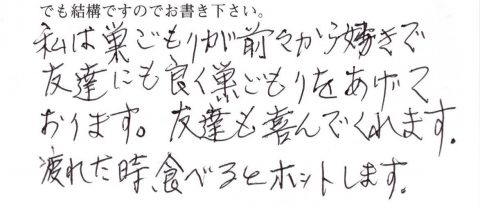 でも結構ですのでお書き下さい。
私は巣ごもりが前々から好きで
友達にも良く巣ごもりをあげて
おります。友達も喜んでくれます。
疲れた時、食べるとホットします。